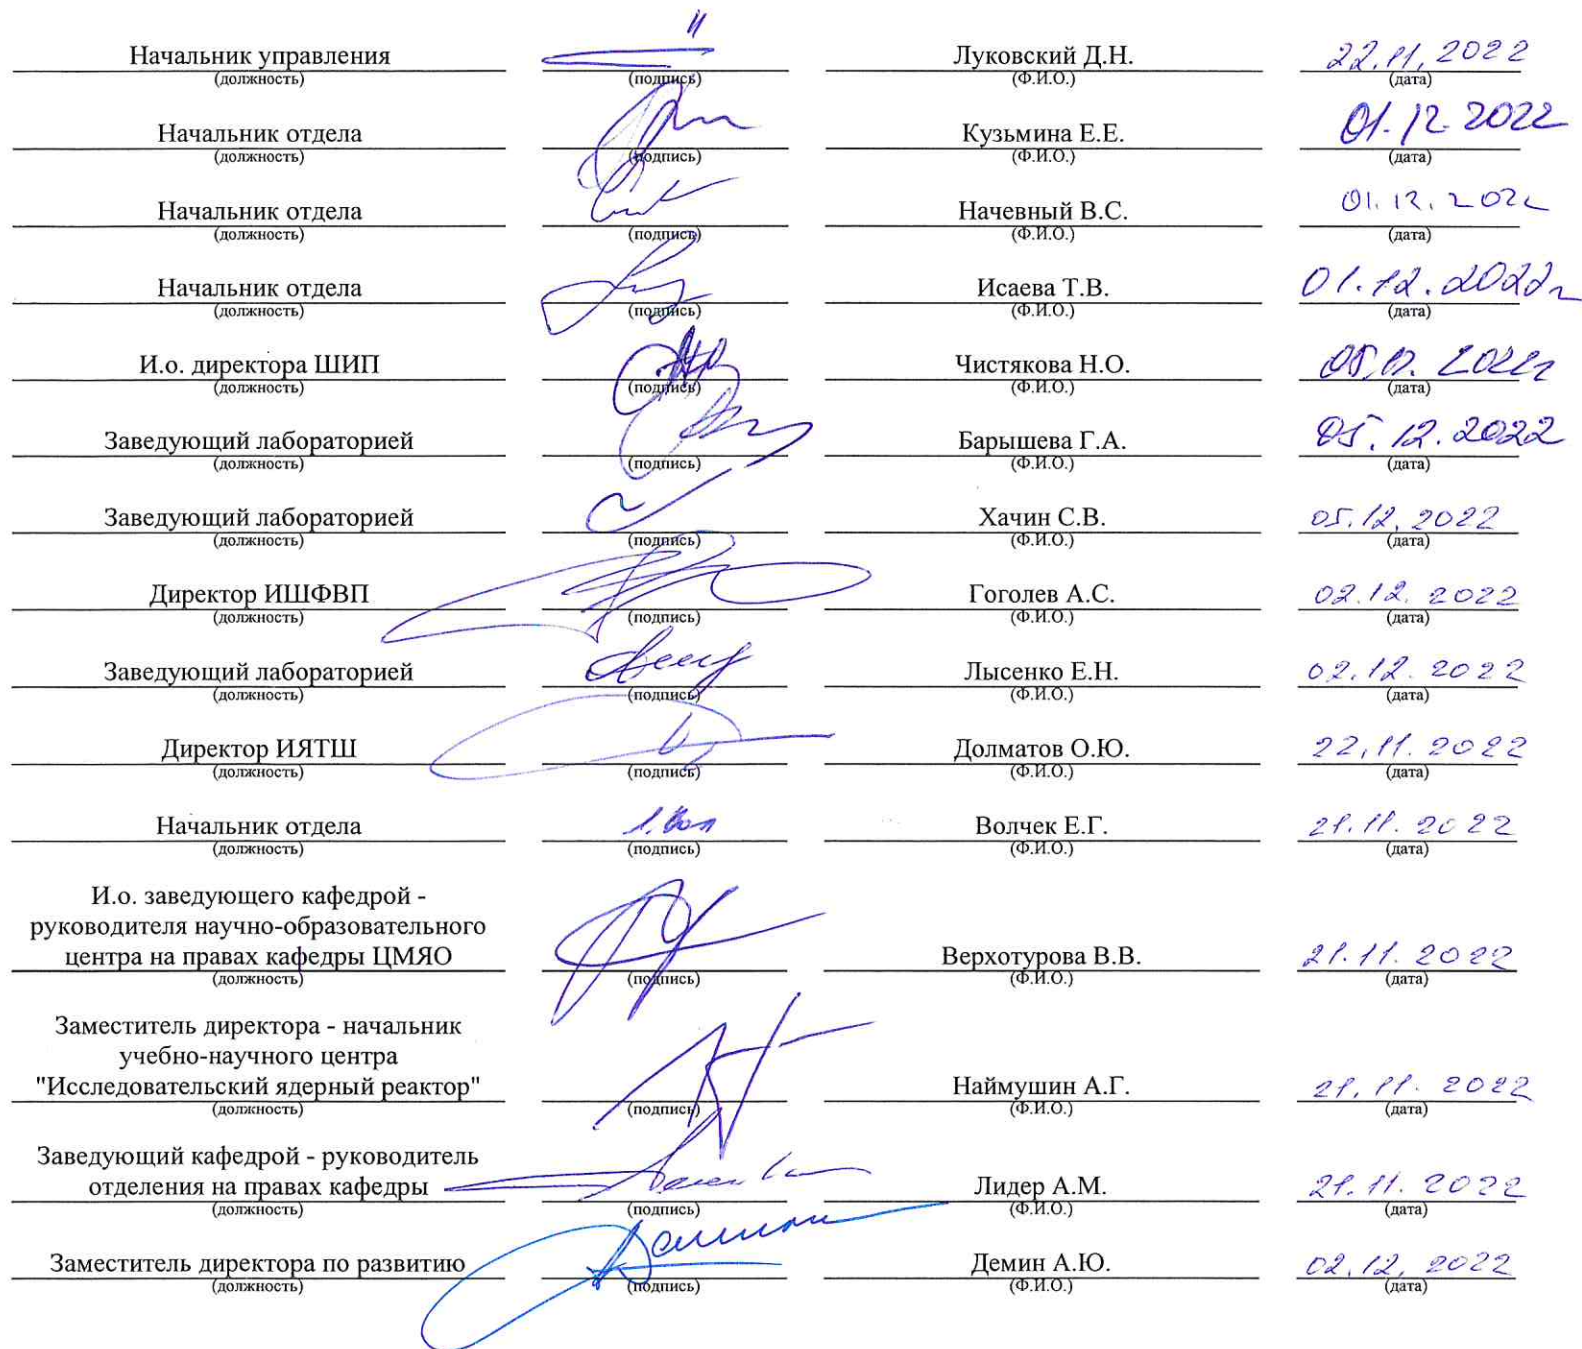 Начальник управления Луковский Д.Н. 22.11.2022
(должность) (подпись) (Ф.И.О.) (дата)
Начальник отдела Кузьмина Е.Е. 01.12.2022
(должность) (подпись) (Ф.И.О.) (дата)
Начальник отдела Начевный В.С. 01.12.2022
(должность) (подпись) (Ф.И.О.) (дата)
Начальник отдела Исаева Т.В. 01.12.2022г
(должность) (подпись) (Ф.И.О.) (дата)
И.о. директора ШИП Чистякова Н.О. 05.12.2022г
(должность) (подпись) (Ф.И.О.) (дата)
Заведующий лабораторией Барышева Г.А. 05.12.2022
(должность) (подпись) (Ф.И.О.) (дата)
Заведующий лабораторией Хачин С.В. 05.12.2022
(должность) (подпись) (Ф.И.О.) (дата)
Директор ИШФВП Гоголев А.С. 02.12.2022
(должность) (подпись) (Ф.И.О.) (дата)
Заведующий лабораторией Лысенко Е.Н. 02.12.2022
(должность) (подпись) (Ф.И.О.) (дата)
Директор ИЯТШ Долматов О.Ю. 22.11.2022
(должность) (подпись) (Ф.И.О.) (дата)
Начальник отдела Волчек Е.Г. 21.11.2022
(должность) (подпись) (Ф.И.О.) (дата)
И.о. заведующего кафедрой -
руководителя научно-образовательного
центра на правах кафедры ЦМЯО Верхотурова В.В. 21.11.2022
(должность) (подпись) (Ф.И.О.) (дата)
Заместитель директора - начальник
учебно-научного центра
"Исследовательский ядерный реактор" Наймушин А.Г. 21.11.2022
(должность) (подпись) (Ф.И.О.) (дата)
Заведующий кафедрой - руководитель
отделения на правах кафедры Лидер А.М. 21.11.2022
(должность) (подпись) (Ф.И.О.) (дата)
Заместитель директора по развитию Демин А.Ю. 02.12.2022
(должность) (подпись) (Ф.И.О.) (дата)